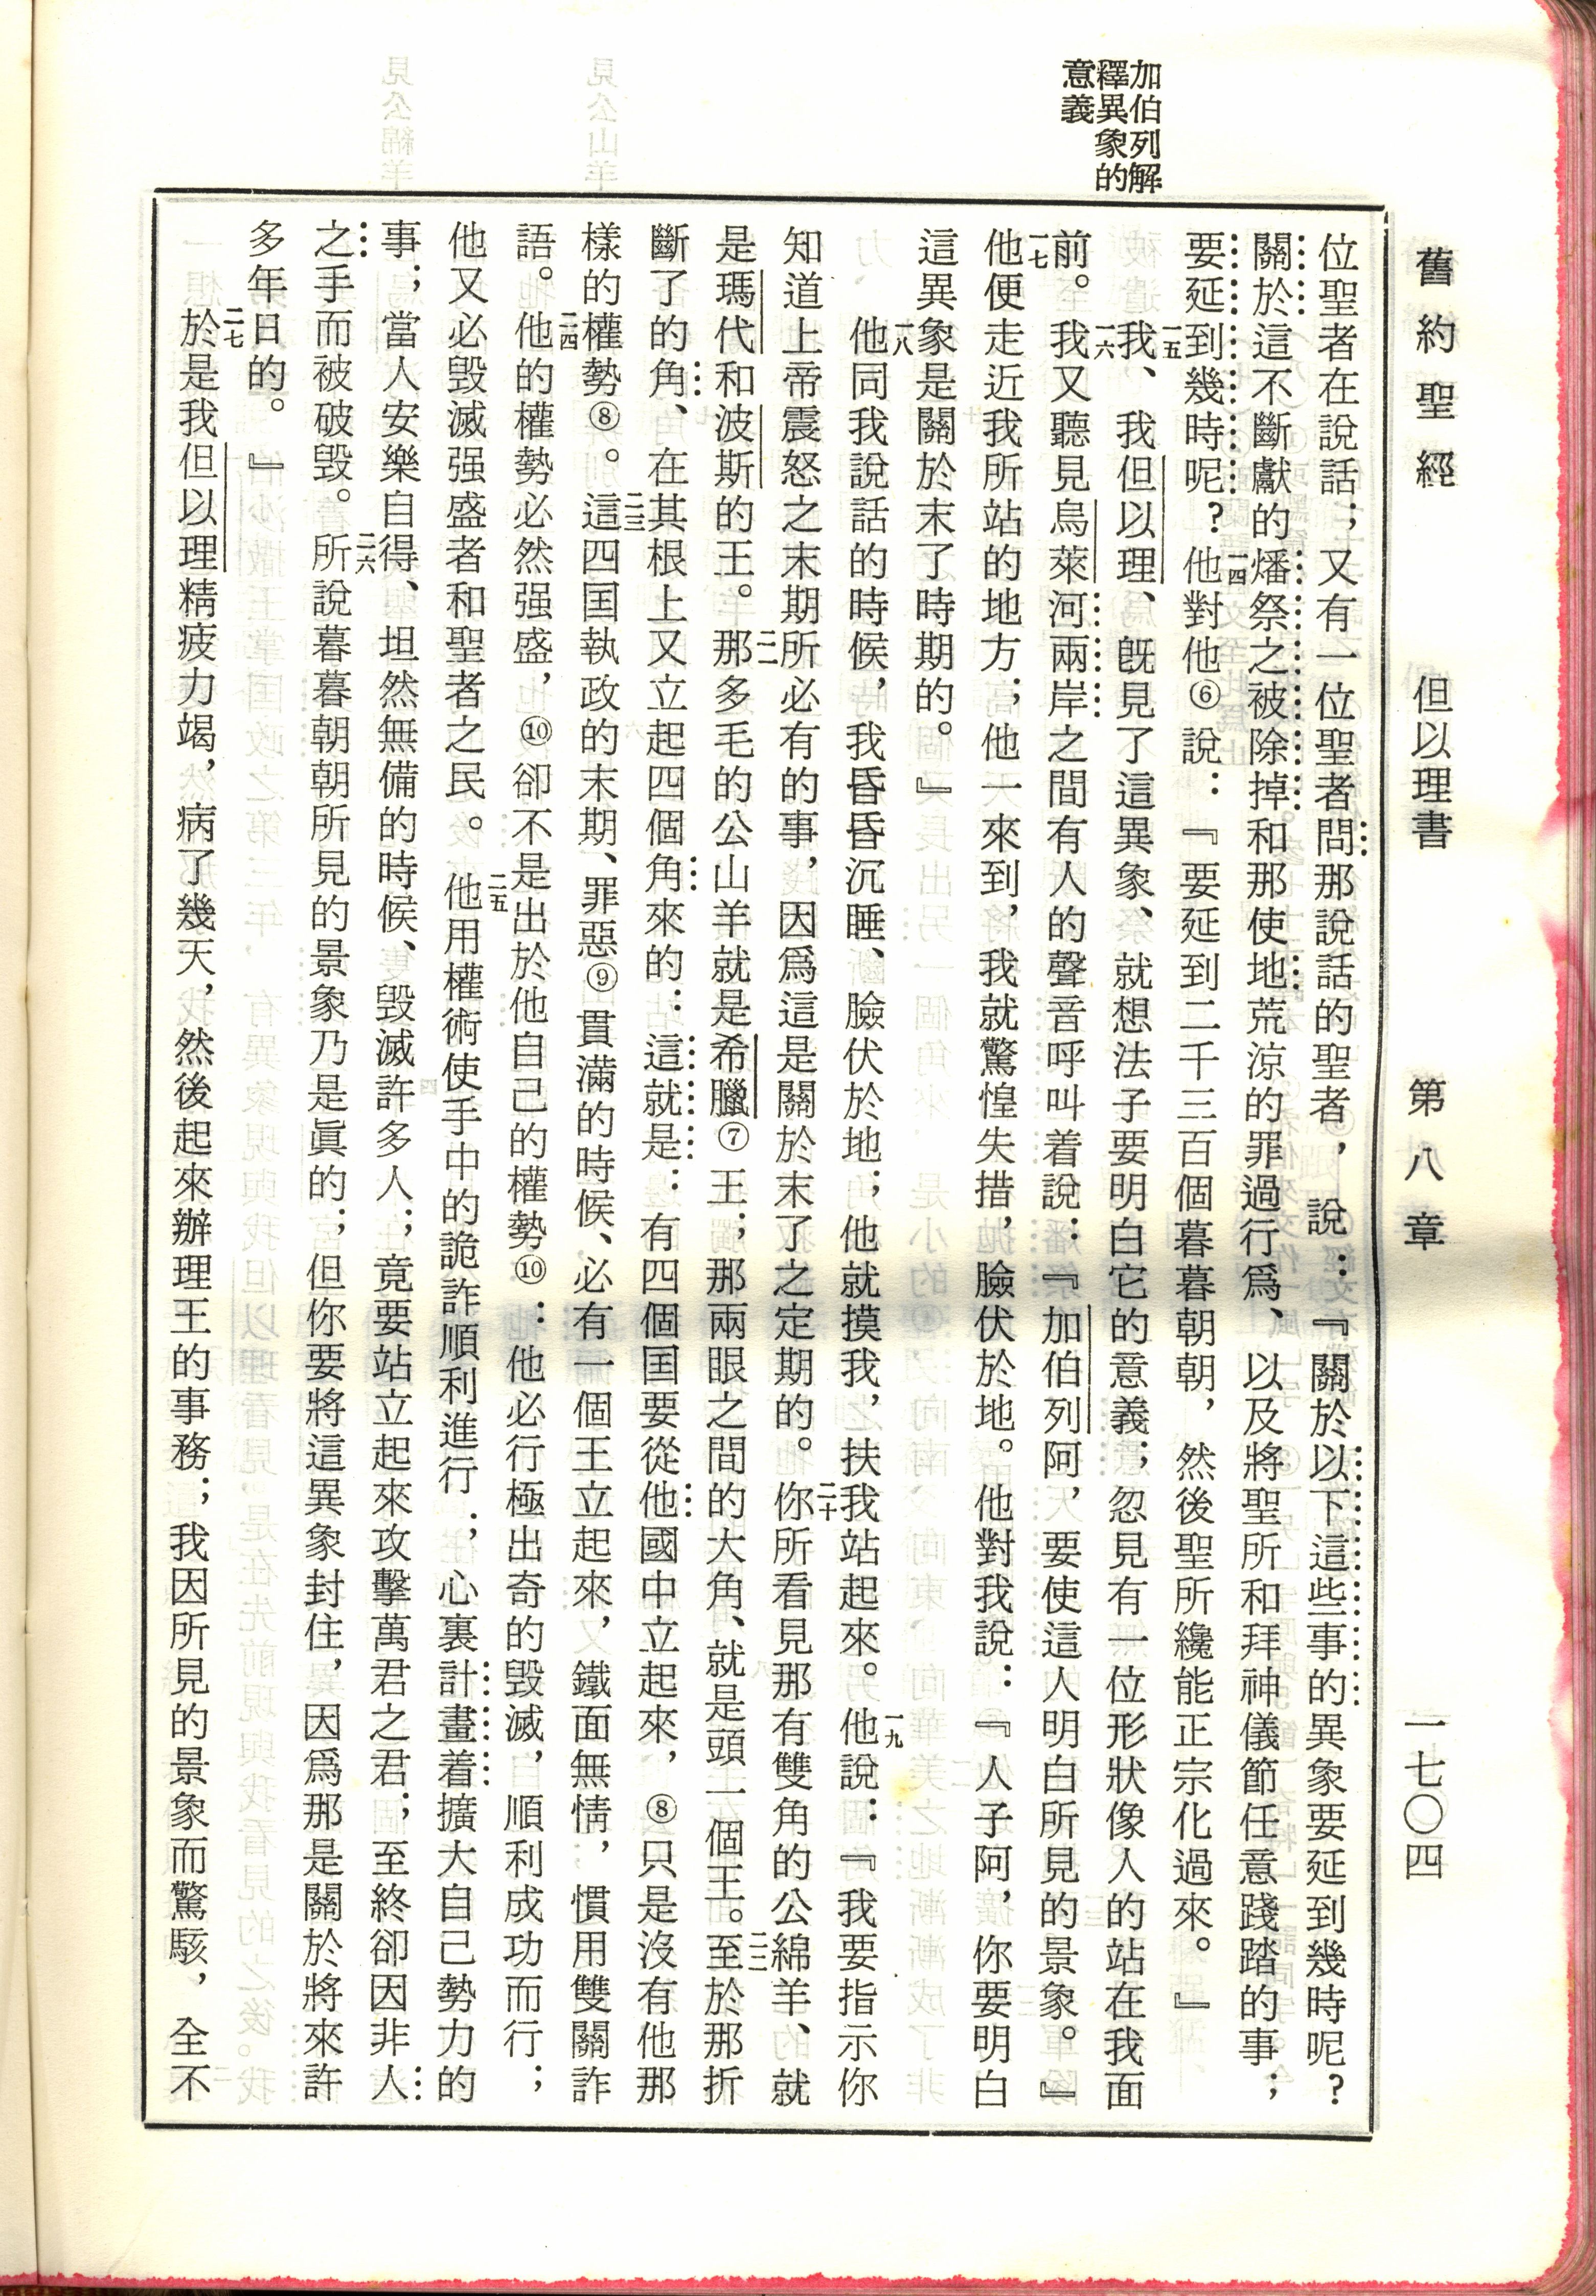 舊約聖經　但以理書　第八章　一七〇四
加伯列解
釋異象的
意義
位聖者在說話；又有一位聖者問那說話的聖者，說：『關於以下這些事的異象要延到幾時呢？
關於這不斷獻的燔祭之被除掉。和那使地荒涼的罪過行爲、以及將聖所和拜神儀節任意踐踏的事；
要延到幾時呢？一四他對他⑥說：『要延到二千三百個暮暮朝朝，然後聖所纔能正宗化過來。』
一五我、我但以理、旣見了這異象、就想法子要明白它的意義；忽見有一位形狀像人的站在我面
前。一六我又聽見烏萊河兩岸之間有人的聲音呼叫着說：『加伯列阿，要使這人明白所見的景象。』
一七他便走近我所站的地方；他一來到，我就驚惶失措，臉伏於地。他對我說：『人子阿，你要明白
這異象是關於末了時期的。』
一八他同我說話的時候，我昏昏沉睡、臉伏於地；他就摸我，扶我站起來。一九他說：『我要指示你
知道上帝震怒之末期所必有的事，因爲這是關於末了之定期的。二十你所看見那有雙角的公綿羊、就
是瑪代和波斯的王。二一那多毛的公山羊就是希臘⑦王；那兩眼之間的大角、就是頭一個王。二二至於那折
斷了的角、在其根上又立起四個角來的：這就是：有四個国要從他國中立起來，⑧只是沒有他那
樣的權勢⑧。二三這四国執政的末期、罪惡⑨貫滿的時候、必有一個王立起來，鐵面無情，慣用雙關詐
語。二四他的權勢必然强盛，⑩卻不是出於他自己的權勢⑩：他必行極出奇的毀滅，順利成功而行；
他又必毀滅强盛者和聖者之民。二五他用權術使手中的詭詐順利進行；心裏計畫着擴大自己勢力的
事；當人安樂自得、坦然無備的時候、毀滅許多人；竟要站立起來攻擊萬君之君；至終卻因非人
之手而被破毀。二六所說暮暮朝朝所見的景象乃是眞的；但你要將這異象封住，因爲那是關於將來許
多年日的。』
二七於是我但以理精疲力竭，病了幾天，然後起來辦理王的事務；我因所見的景象而驚駭，全不